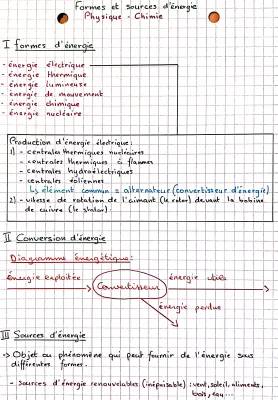 Formes et sources d'énergie
Physique - Chimie
I formes d'énergie
- énergie électrique
- énergie thermique
- énergie lumineuse
- énergie de mouvement
- énergie chimique
- énergie nucléaire
Production d'énergie électrique :
1) - centrales thermiques nucléaires
- centrales thermiques à flammes
- centrales hydroélectriques
- centrales éoliennes
↳ élément commun = alternateur (convertisseur d'énergie)
2) - vitesse de rotation de l'aimant (le rotor) devant la bobine
de cuivre (le stator).
II Conversion d'énergie
Diagramme énergétique :
Énergie exploitée
Convertisseur
énergie utile
énergie perdue
III Sources d'énergie
-> Objet ou phénomène qui peut fournir de l'énergie sous
différentes formes.
- Sources d'énergie renouvelables (inépuisable) : vent, soleil, aliments,
bois, eau...